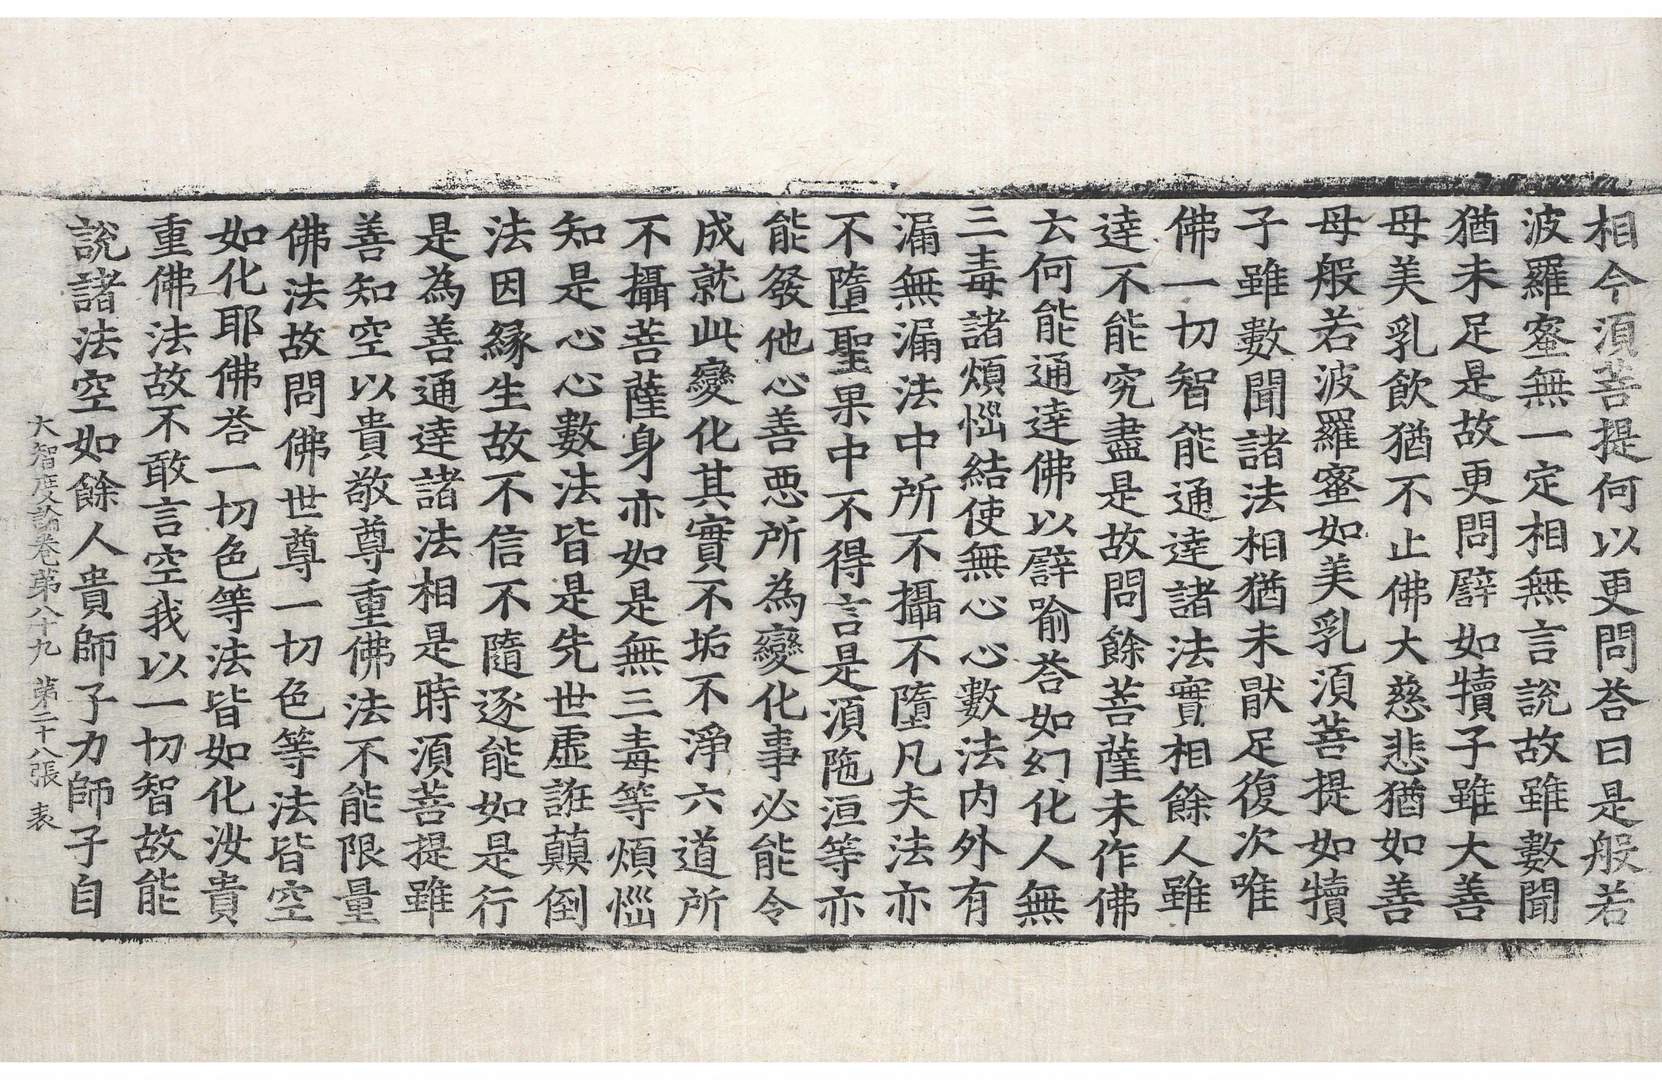 相今湏菩提何以更問荅曰是般若
波羅蜜無一定相無言說故雖數聞
猶未足是故更問譬如犢子雖大善
母美乳飲猶不止佛大慈悲猶如善
母般若波羅蜜如美乳湏菩提如犢
子雖數聞諸法相猶未猒足復次唯
佛一切智能通逹諸法實相餘人雖
逹不能究盡是故問餘菩薩未作佛
云何能通逹佛以譬喻荅如幻化人無
三毒諸煩惱結使無心心數法內外有
漏無漏法中所不攝不墮凡夫法亦
不墮聖果中不得言是湏陁洹等亦
能發他心善惡所為變化事必能令
成就此變化其實不垢不淨六道所
不攝菩薩身亦如是無三毒等煩惱
知是心心數法皆是先世虛誑顚倒
法因緣生故不信不隨逐能如是行
是為善通逹諸法相是時湏菩提雖
善知空以貴敬尊重佛法不能限量
佛法故問佛世尊一切色等法皆空
如化耶佛荅一切色等法皆如化汝貴
重佛法故不敢言空我以一切智故能
說諸法空如餘人貴師子力師子自
大智度論卷苐八十九 苐二十八張 表